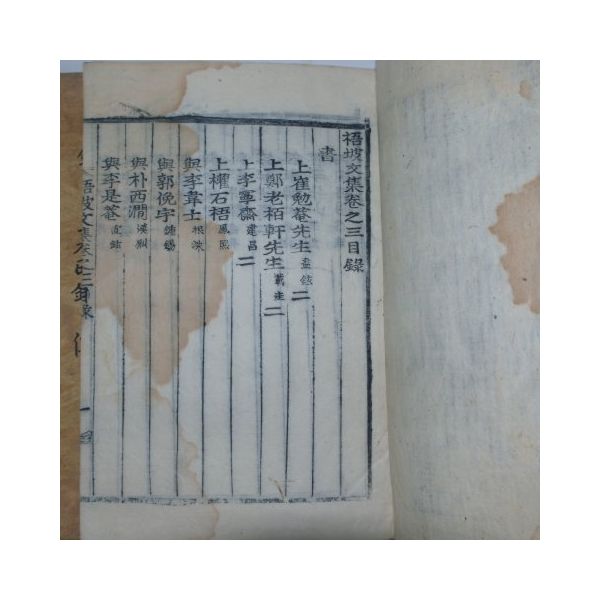 梧坡文集卷之三目錄
書
上崔勉菴先生 益鉉 二
上鄭老栢軒先生 載圭 二
上李寧齋 建昌 二
上權石梧 鳳熙
與李韋士 根洙
與郭俛宇 鍾錫
與朴西澗
與李是菴 直鉉
梧坡文集卷之三目錄
一